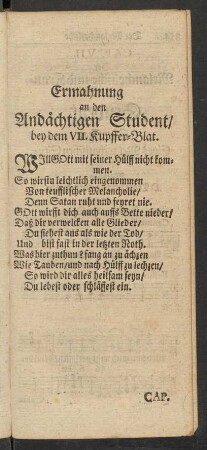 Ermahnung
an den
Andächtigen Student/
bey dem VII. Kupffer-Blat.
WIll GOtt mit seiner Hülff nicht kom-
men.
So wirstu leichtlich eingenommen
Von teufflischer Melancholie/
Denn Satan ruht und feyret nie.
GOtt wirfft dich auch auffs Bette nieder/
Daß dir verwelcken alle Glieder/
Du siehest aus als wie der Tod/
Und bist fast in der letzten Noth.
Was hier zuthun? fang an zu ächzen
Wie Tauben/ und nach Hülff zu lechzen/
So wird dir alles heilsam seyn/
Du lebest oder schläffest ein.
CAP.